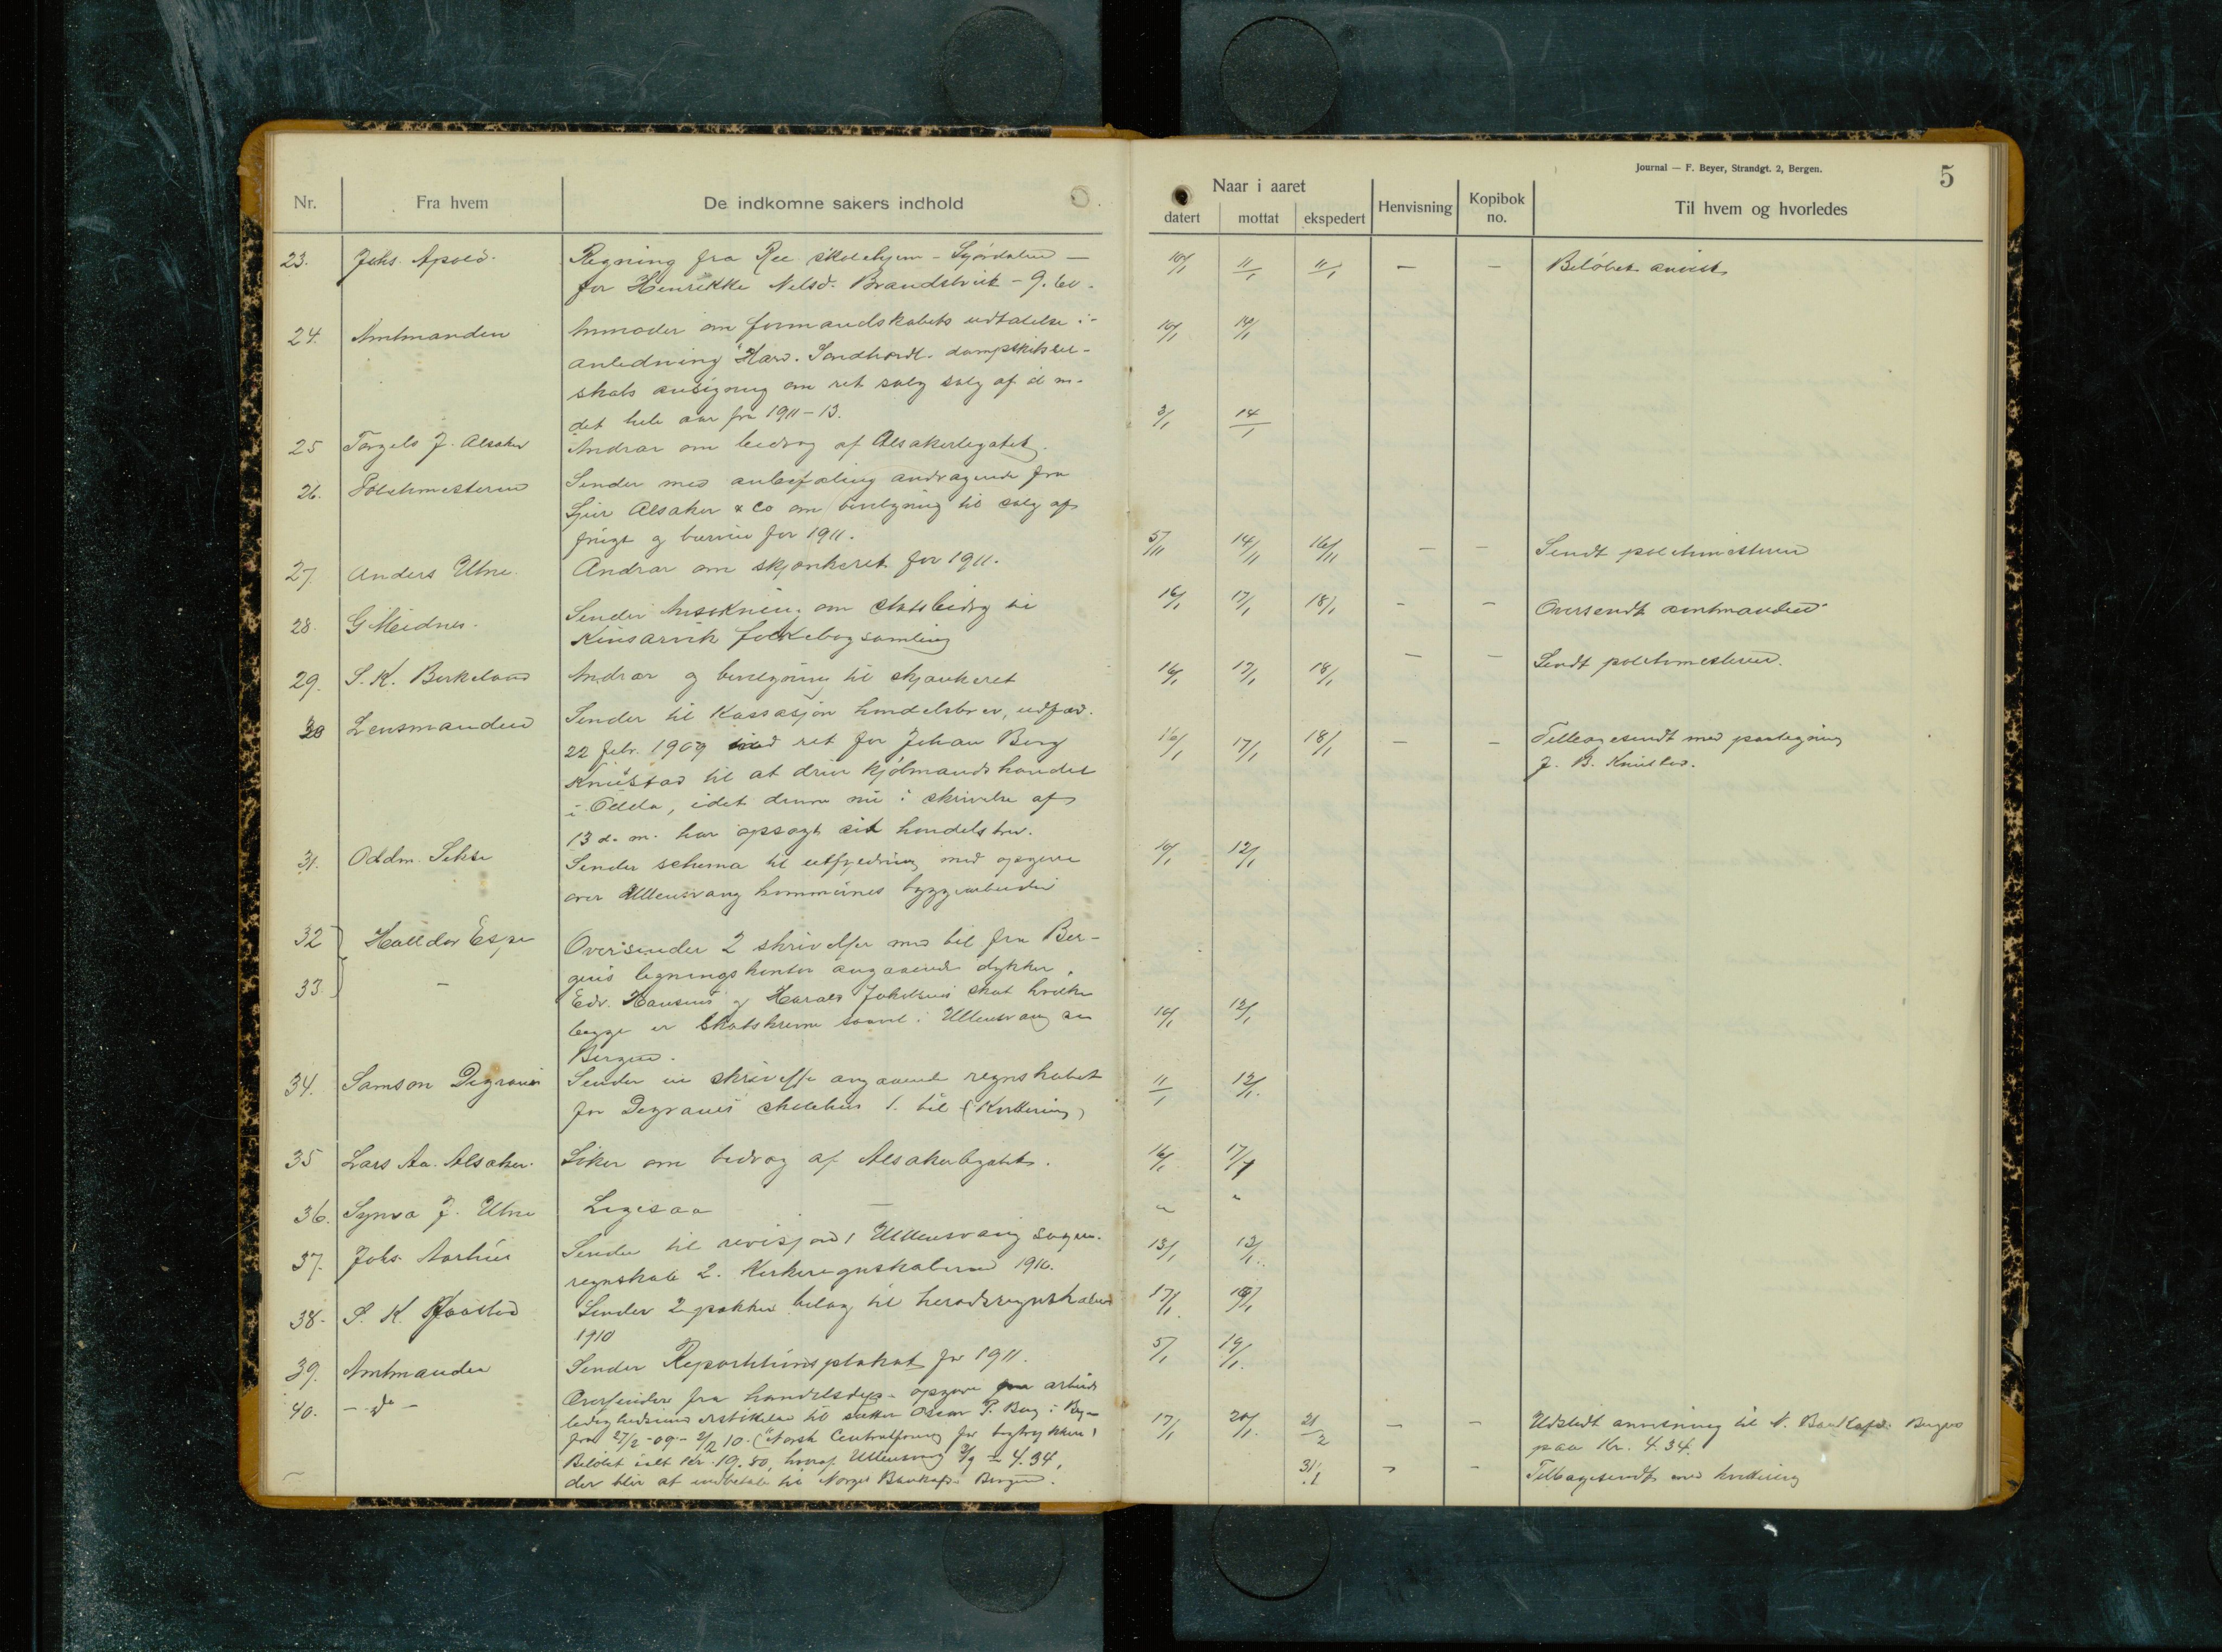 Journal — F. Beyer, Strandgt. 2, Bergen.
5
Nr. Fra hvem De indkomne sakers indhold
Naar i aaret
datert mottat ekspedert Henvisning Kopibok no. Til hvem og hvorledes
23. Johs. Apold. Regning fra Ree skolehjem - Stjördalen — 10/1 11/1 11/1 — — Belöbet anvist
for Henrikke Nilsd. Brandstveit - 9.60.
24. Amtmanden Anmoder om formandskabets udtalelse i 10/1 14/1
anledning Hard. Söndhordl. dampskibssel-
skabs ansögning om ret salg af öl m.
det hele aar fra 1911-13.
25 Torgels J. Alsaker Andrar om bidrag af Alsakerlegatet. 3/1 14/1
26. Politimesteren Sender med anbefaling andragende fra
Sjur Alsaker & Co om bevilgning til salg af
frugt og for 1911.
27. Anders Utne. Andrar om skjænkeret for 1911. 5/11 14/11 16/11 — — Sendt politimesteren
28. G Meidner. Sender Ansökning om statsbidrag til 16/1 17/1 18/1 — — Oversendt amtmanden
Kinsarvik folkebogsamling
29. S. K. Berkeland Andrar og bevilgning til skjænkeret 16/1 17/1 18/1 — — Sendt politimesteren.
30 Lensmanden Sender til Kassasjon handelsbrev, udfærd.
22 febr. 1909 med ret for Johan Berg 16/1 17/1 18/1 — — Tilbagesendt med paategning
Knudstad til at drive kjöbmandshandel J. B. Knustad.
i Odda, idet denne nu i skrivelse af
13 d. m. har opsagt sit handelsbrev.
31. Oddm. Sekse Sender schema til utfyldning med opgave 10/1 12/1
over Ullensvang kommunes byggearbeider
32 Halldor Espe Oversender 2 skrivelser med bil fra Ber-
33 — gens ligningskontor angaaende dykker
Edv. Hansens og Harald Jakobsens skat hvilke
begge er skatskrevne saavel i Ullensvang som 10/1 12/1
Bergen.
34. Samson Digranes Sender en skrivelse angaaende regnskabet 11/1 12/1.
for Digranes skolehus 1. bil (Kvittering)
35 Lars Aa. Alsaker. Söker om bidrag af Alsakerlegatet. 16/1 17/1
36. Synva J. Utne Ligesaa — " "
37. Johs. Aarhus Sender til revisjon 1 Ullensvang sogne- 13/1 13/1.
regnskab 2. Kirkeregnskaberne 1910.
38. S. K. Jaastad Sender 2 pakker bilag til herredsregnskabet 17/1. 18/1
1910
39. Amtmanden Sender Repartitionsplakat for 1911. 5/1 19/1.
40. — do — Oversender fra handelsdep. opgave fra arbeids
ledighedsunderstöttelse til sætter Oscar P. Berg i Bgn
fra 27/2-09 - 2/12 10. (Norsk Centralforening for bogtrykkere) 17/1 20/1. 21/2 — — Udstedt anvisning til N. Bankafd. Bergen
Belöbet ialt kr. 19.80, hvoraf Ullensvang = 4.34, paa Kr. 4.34.
der blir at indbetale til Norges Bankafd. Bergen. 31/1 — — Tilbagesendt med kvittering